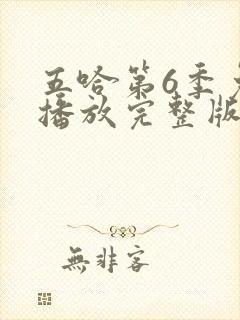 五哈第6季免
播放完整版
無非客